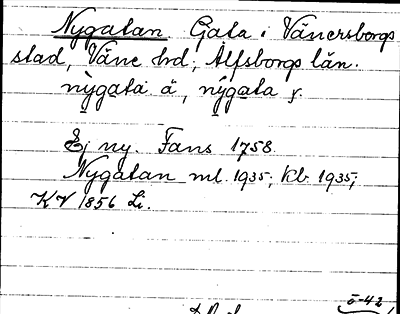 Nygatan. Gata i Vänersborgs
stad, Väne hd, Älfsborgs län.
nỳgata å, nýgata y.
Ej ny. Fans 1758.
Nygatan ml. 1935, kb. 1935,
KV 1856 Li.
ö-42